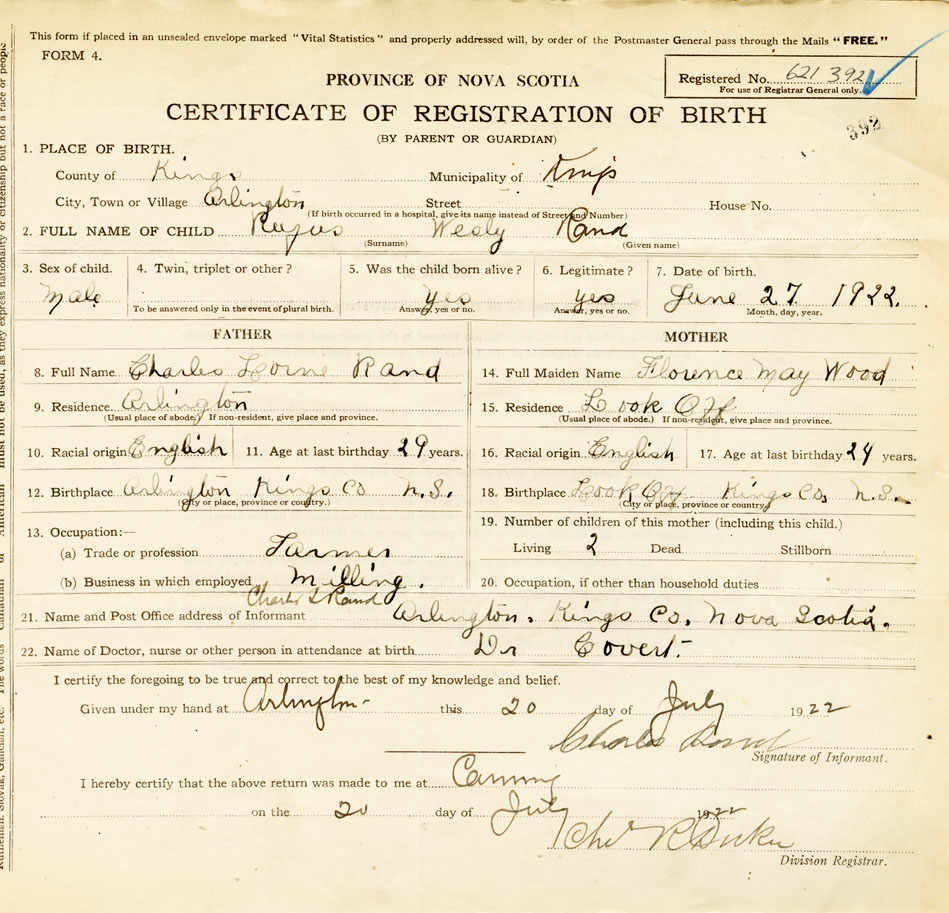 This form if placed in an unsealed envelope marked "Vital Statistics" and properly addressed will, by order of the Postmaster General pass through the Mails "FREE."
FORM 4.
Registered No. 621 392
For use of Registrar General only.
392
PROVINCE OF NOVA SCOTIA
CERTIFICATE OF REGISTRATION OF BIRTH
(BY PARENT OR GUARDIAN)
1. PLACE OF BIRTH.
County of Kings Municipality of Kings
City, Town or Village Arlington Street House No.
(If birth occurred in a hospital, give its name instead of Street and Number)
2. FULL NAME OF CHILD Rufus Wesly Rand
(Surname) (Given name)
3. Sex of child. 4. Twin, triplet or other? 5. Was the child born alive? 6. Legitimate? 7. Date of birth.
Male yes yes June 27 1922.
To be answered only in the event of plural birth. Answer, yes or no. Answer, yes or no. Month, day, year.
FATHER MOTHER
8. Full Name Charles Lorne Rand 14. Full Maiden Name Florence May Wood
9. Residence Arlington 15. Residence Look Off
(Usual place of abode.) If non-resident, give place and province. (Usual place of abode.) If non-resident, give place and province.
10. Racial origin English 11. Age at last birthday 29 years. 16. Racial origin English 17. Age at last birthday 24 years.
12. Birthplace Arlington Kings Co N.S. 18. Birthplace Look Off Kings Co, N.S.
(City or place, province or country.) (City or place, province or country)
13. Occupation:— 19. Number of children of this mother (including this child.)
(a) Trade or profession Farmer Living 2 Dead Stillborn
(b) Business in which employed Milling. 20. Occupation, if other than household duties
Charles L Rand
21. Name and Post Office address of Informant Arlington, Kings Co, Nova Scotia.
22. Name of Doctor, nurse or other person in attendance at birth Dr Covert.
I certify the foregoing to be true and correct to the best of my knowledge and belief.
Given under my hand at Arlington this 20 day of July 1922
Charles Rand
Signature of Informant.
I hereby certify that the above return was made to me at Canning
on the 20 day of July 1922
Division Registrar.